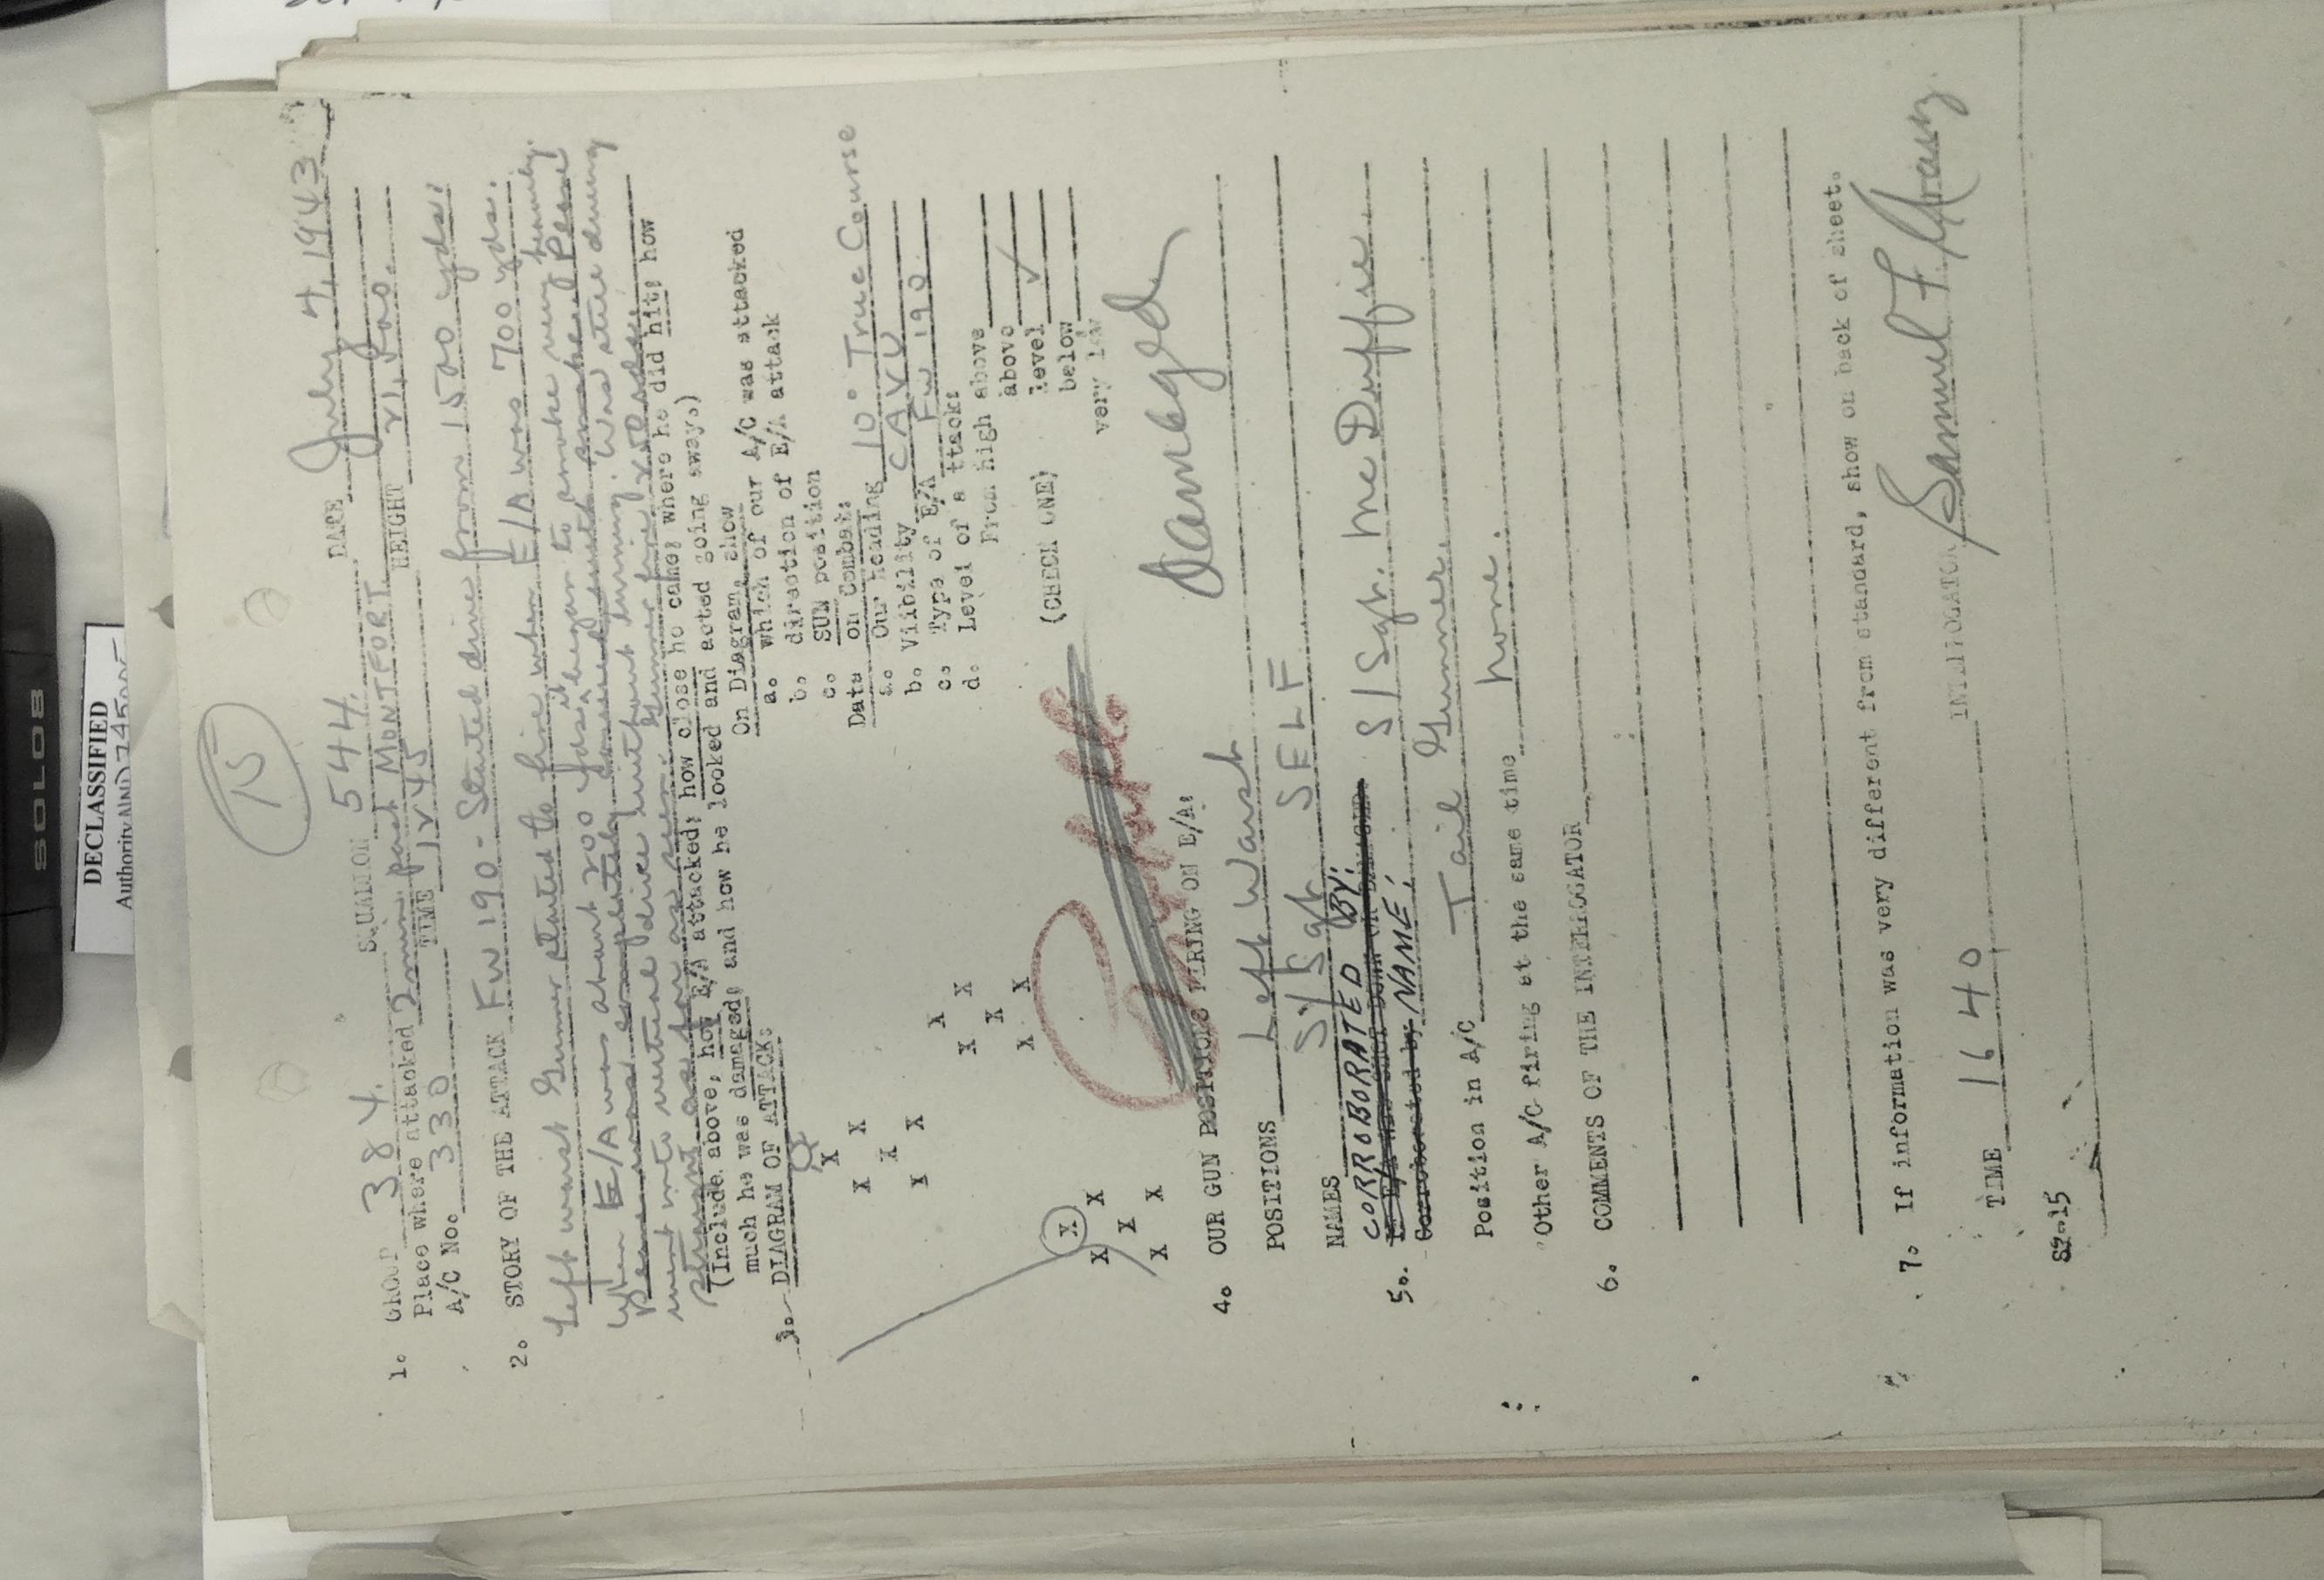 SOLO8
DECLASSIFIED
Authority NND 745005
15
1. GROUP 384. SQUADRON 544. DATE July 4, 1943
Place where attacked 2 min past MONTFORT HEIGHT 21,500.
A/C No. 330 TIME 1245
2. STORY OF THE ATTACK FW 190 - Started dive from 1500 yds.
Left waist Gunner started the fire when E/A was 700 yds.
When E/A was about 200 yds. it began to smoke very heavily.
went into vertical dive without burning. Was still diving
straight as far as seen. Gunner fire 250 rds.
(Include above; how E/A attacked; how close he came; where he did hit; how
much he was damaged; and how he looked and acted going away.)
3. DIAGRAM OF ATTACK:
On Diagram, show
a. which of our A/C was attacked
b. direction of E/A attack
c. SUN position
Data on Combat:
a. Our Heading 10° True Course
b. Viibility CAVU
c. Type of E/A FW 190
d. Level of a ttack:
From high above
above
level ✓
below
very low
(CHECK ONE)
X
X X
X
X X
X
X X
X
X X
X
X X
X
X X
Damaged
4. OUR GUN POSITIONS FIRING ON E/A:
POSITIONS Left Waist
NAMES S/Sgt SELF
5. CORROBORATED BY:
Corroborated by NAME: S/Sgt. McDuffie
Position in A/C Tail Gunner
Other A/C firing at the same time none.
6. COMMENTS OF THE INTERROGATOR
7. If information was very different from standard, show on back of sheet.
TIME 1640 INTERROGATOR Samuel F.
S2-15